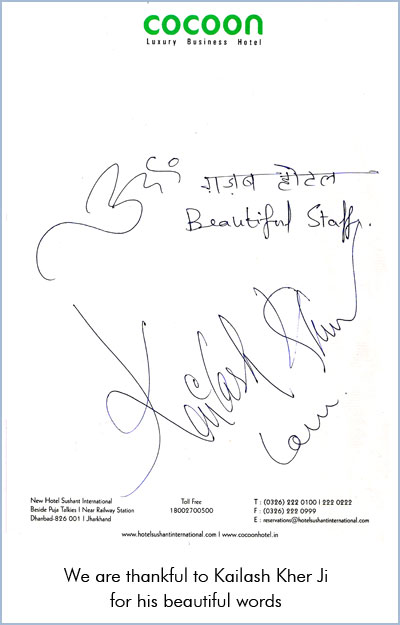 cocoon
Luxury Business Hotel
ॐ ग़ज़ब होटल
Beautiful Staff.
Kailash Kher
New Hotel Sushant International
Beside Puja Talkies | Near Railway Station
Dhanbad-826 001 | Jharkhand
Toll Free
18002700500
T : (0326) 222 0100 | 222 0222
F : (0326) 222 0999
E : reservations@hotelsushantinternational.com
www.hotelsushantinternational.com | www.cocoonhotel.in
We are thankful to Kailash Kher Ji
for his beautiful words